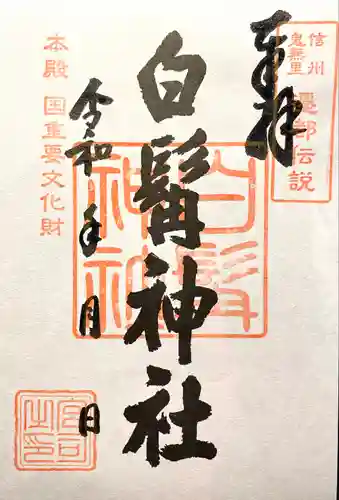 奉拝
信州
鬼無里
遷都伝説
白髯神社
本殿 国重要文化財
令和 年 月 日
白髯神社
宮司之印